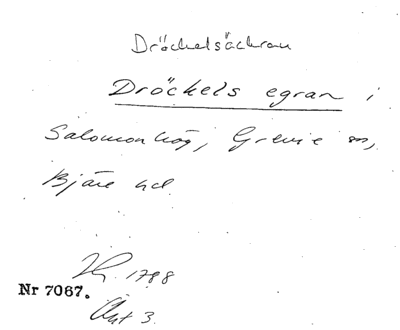 Dröckelsåchran
Dröckels egran i
Salomonhög, Grevie sn,
Bjäre hd.
1788
Nr 7067.
Akt 3.